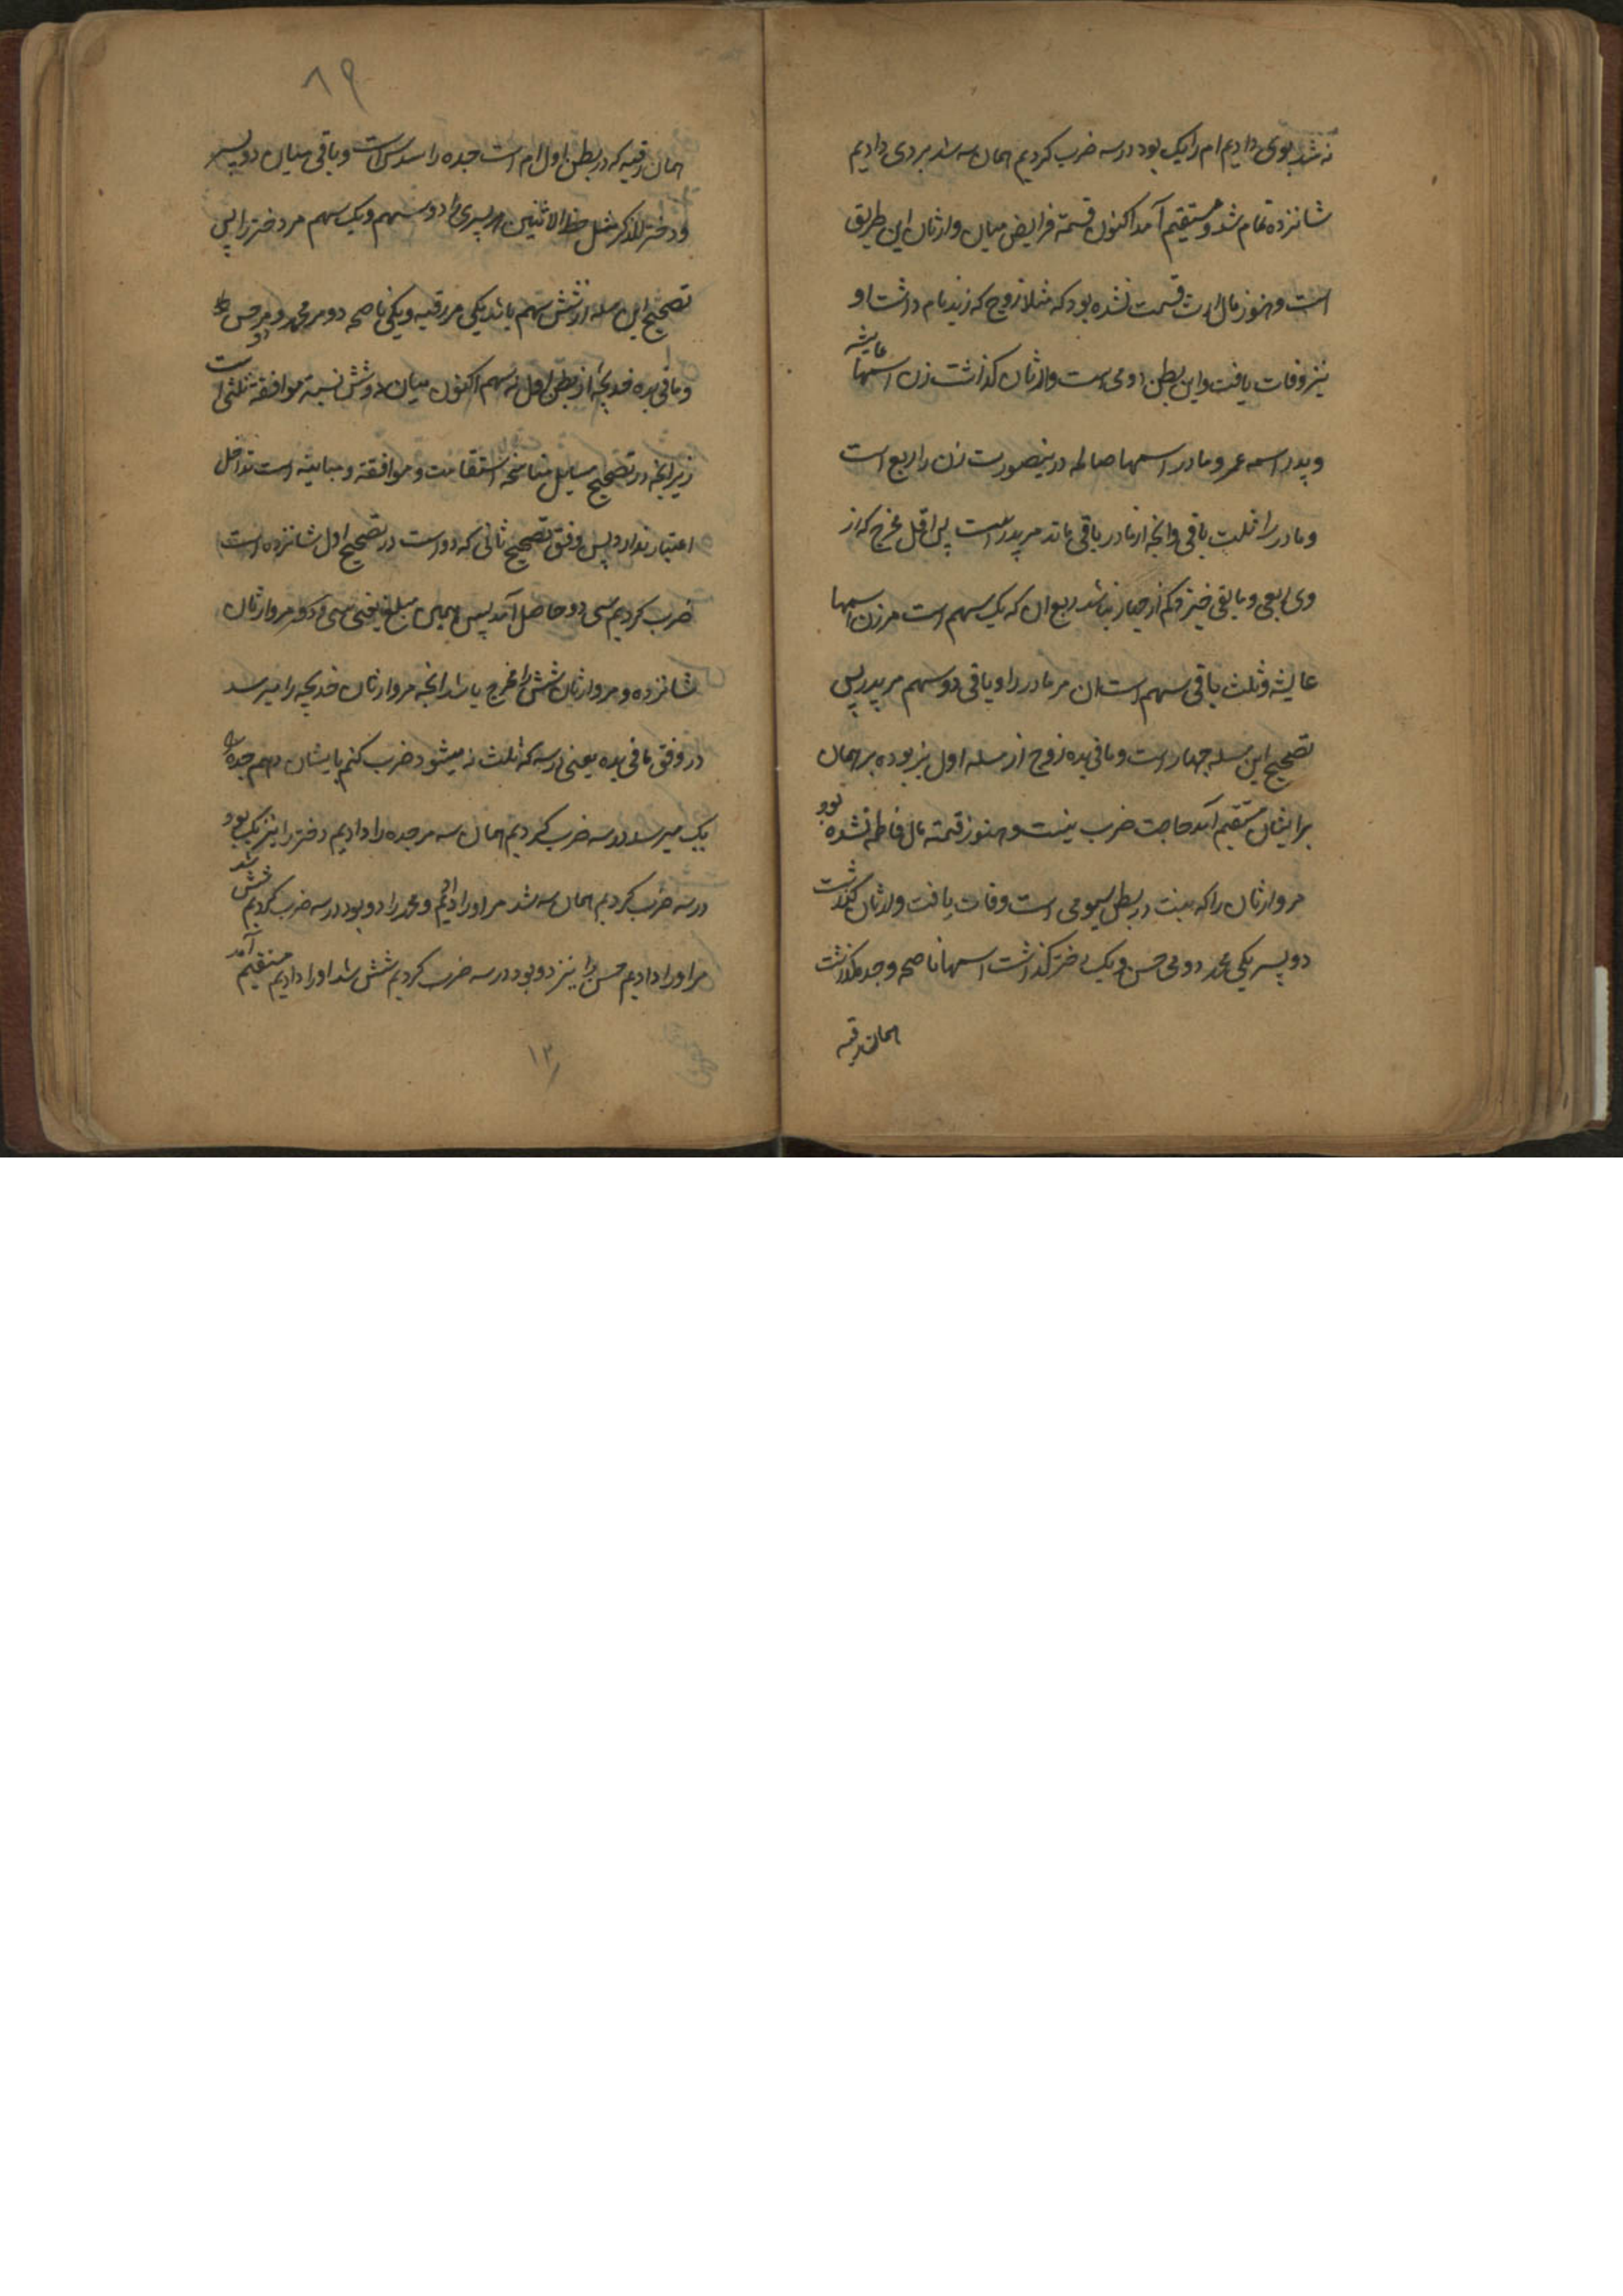 نه شد بوی دادیم ام را یک بود در سه ضرب کردیم همان سه شد بر دی دادیم
شانزده تمام شد و مستقیم آمد اکنون قسمة فرایض میان وارثان این طریق
است و هنوز مال ارث قسمت نشده بود که مثلا زوج که زید نام داشت او
نیز وفات یافت و این بطن دومی است وارثان گذاشت زن اسمها عایشه
و پدر اسمه عمر و مادر اسمها صالحه درینصورت زن را ربع است
و مادر را ثلث باقی وانچه از مادر باقی ماند مر پدر راست پس اقل مخرج که از
وی ربعی و مابقی خیزد کم از چهار نباشد ربع ان که یک سهم است مر زن اسمها
عایشه و ثلث باقی سهم است ان مر مادر را و باقی دو سهم مر پدر پس
تصحیح این مسله چهار است و مافی یده زوج از مسله اول نیز بوده بر همان
برایشان مستقیم آمد حاجت ضرب نیست و هنوز قسمة مال فاطمه نشده بود
مر وارثان را که بنت در بطن سیومی است وفات یافت وارثان گذاشت
دو پسر یکی محمد دومی حسن و یک دختر گذاشت اسمها ناصحه و جده گذاشت
همان رقیه
۸۹
همان رقیه که در بطن اول ام است جده را سدس است و باقی میان دو پسر
و دختر للذکر مثل حظ الانثیین هر پسری را دو سهم و یک سهم مر دختر را پس
تصحیح این مسله از شش سهم باشد یکی مر رقیه و یکی ناصحه دو مر محمد و دو مر حسن را
و مافی یده خدیجه از بطن اول نه سهم اکنون میان نه و شش نسبة موافقة ثلثی است
زیرانچه در تصحیح مسایل مناسخه استقامت و موافقة و مباینه است تداخل
اعتبار ندارد پس وفق تصحیح ثانی که دو است در تصحیح اول شانزده است
ضرب کردیم سی دو حاصل آمد پس همین مبلغ یعنی سی و دو مر وارثان
شانزده و مر وارثان شش را مخرج باشد انچه مر وارثان خدیجه را میرسد
در وفق مافی یده یعنی در سه که ثلث نه میشود ضرب کنم بایشان دهم جده را
یک میرسد در سه ضرب کردیم همان سه مر جده را دادیم دختر را نیز یک بود
در سه ضرب کردیم همان سه شد مر او را دادیم و محمد را دو بود در سه ضرب کردیم شش شد
مر او را دادیم حسن را نیز دو بود در سه ضرب کردیم شش شد او را دادیم مستقیم آمد
۱۲